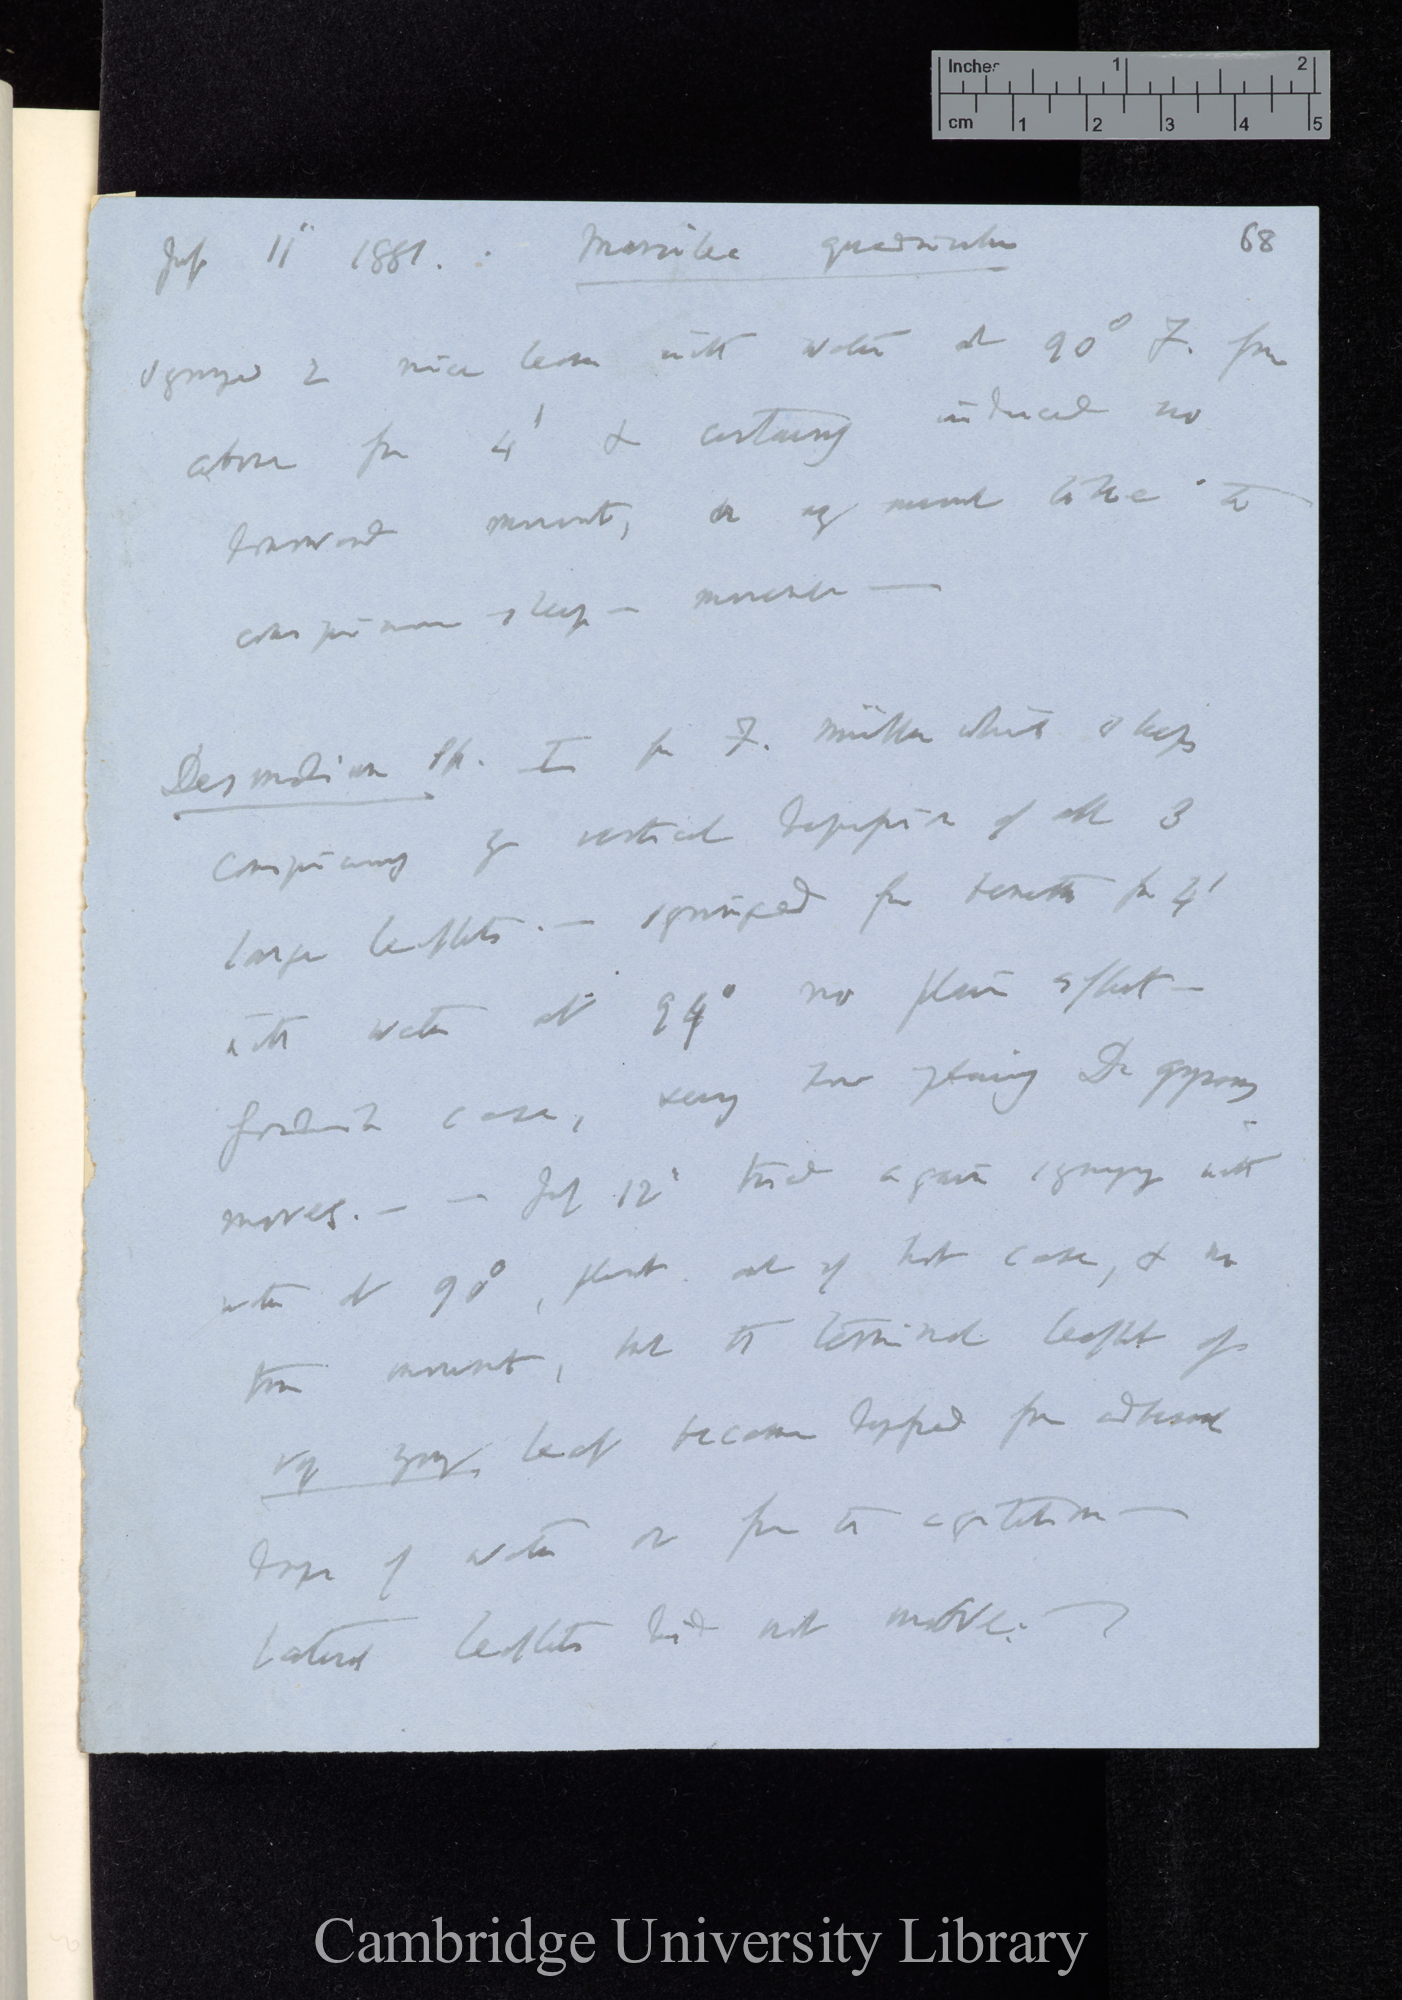 Inches 1 2
cm 1 2 3 4 5
68
July 11th 1881. Marsilea quadrifolia
Syringed 2 nice leaves with water at 90° F. from
above for 4' & certainly induced no
downward movement, or any movement like the
conspicuous sleep-movements —
Desmodium sp. from F. Müller which sleeps
conspicuously by vertical depression of all 3
large leaflets. — syringed from beneath for 4'
with water at 94° no plain effect —
case, seeing how plainly D. gyrans
moves. — — July 12th tried again syringing with
water at 90°, plant out of hot case, & no
true movement, but the terminal leaflet of
very young leaf became depressed from adherent
drops of water or from the agitation —
Lateral leaflets did not move. —
Cambridge University Library